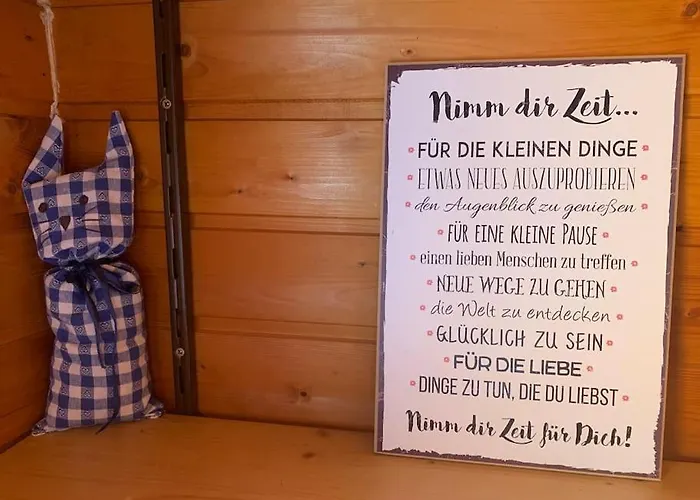 Nimm dir Zeit...
FÜR DIE KLEINEN DINGE
ETWAS NEUES AUSZUPROBIEREN
den Augenblick zu genießen
FÜR EINE KLEINE PAUSE
einen lieben Menschen zu treffen
NEUE WEGE ZU GEHEN
die Welt zu entdecken
GLÜCKLICH ZU SEIN
FÜR DIE LIEBE
DINGE ZU TUN, DIE DU LIEBST
Nimm dir Zeit für Dich!